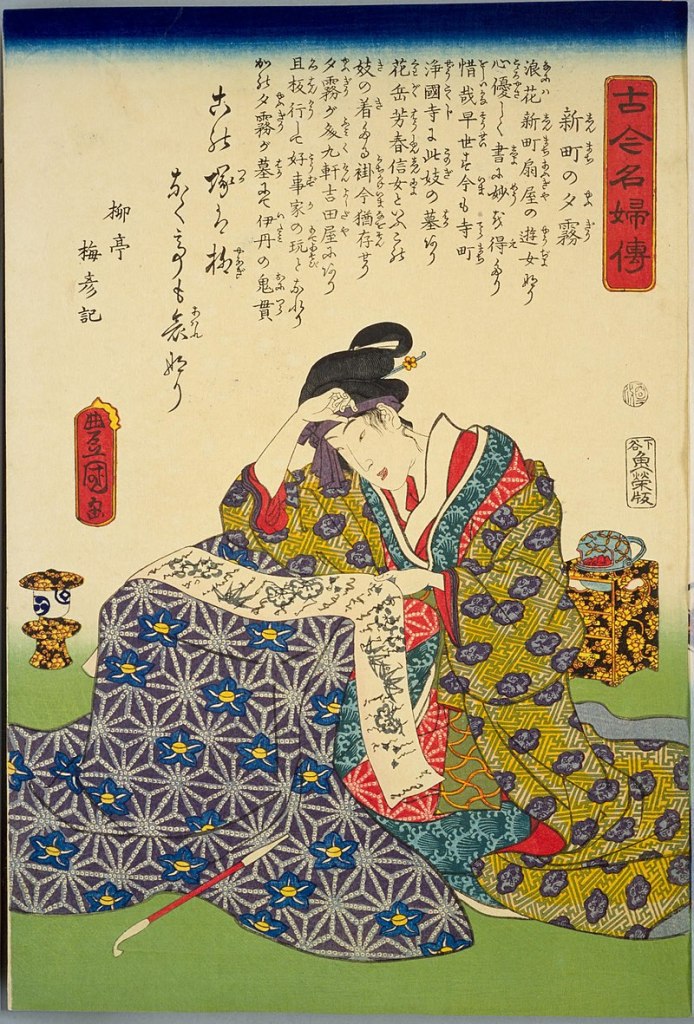 古今名婦傳
新町の夕霧
浪花新町扇屋の遊女なり
心優しく書に妙を得たり
惜哉早世す今も寺町
浄國寺に此妓の墓あり
花岳芳春信女といふこの
妓の着たる裲今猶存せり
夕霧が文九軒吉田屋にあり
且板行して好事家の玩となれり
かの夕霧が墓にて伊丹の鬼貫
この塚は柳
なくても哀なり
柳亭
梅彦記
豊国画
下谷
魚栄版